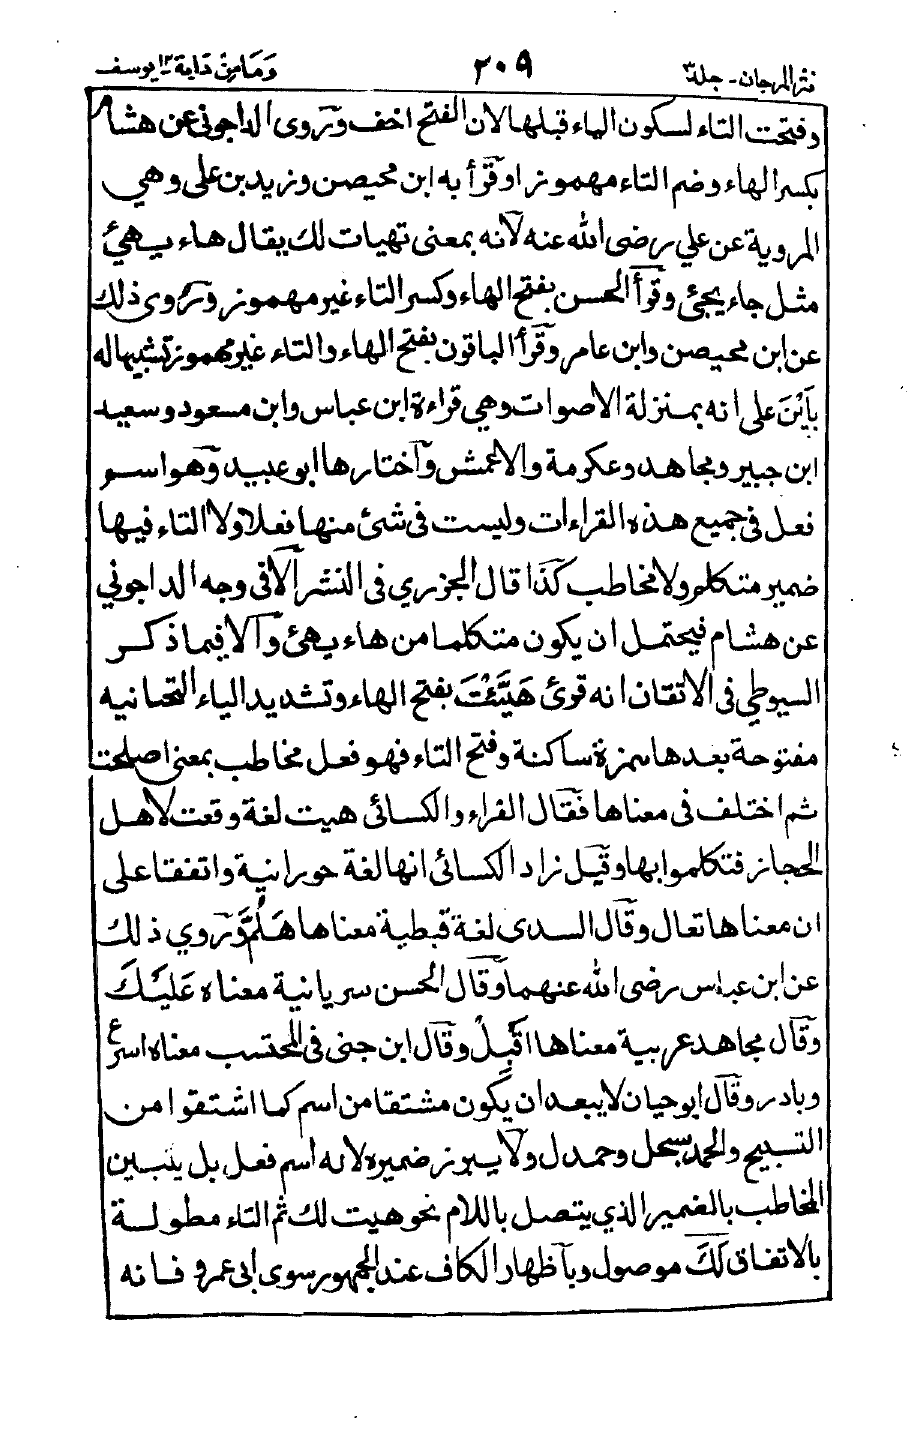 نثر المرجان - جلد ٣ ٢٠٩ وَمَا مِنْ دَابة ١٢ يوسف
وفتحت التاء لسكون الياء قبلها لان الفتح اخف وروى الداجونى عن هشام
بكسر الهاء وضم التاء مهموزا وقرأ به ابن محيصن وزيد بن على وهي
المروية عن علي رضى الله عنه لانه بمعنى تهيات لك يقال هاء يهئ
مثل جاء يجئ وقرأ الحسن بفتح الهاء وكسر التاء غير مهموز وروى ذلك
عن ابن محيصن وابن عامر وقرأ الباقون بفتح الهاء والتاء غير مهموز تشبيها له
بأَيْنَ على انه بمنزلة الاصوات وهي قراءة ابن عباس وابن مسعود وسعيد
ابن جبير ومجاهد وعكرمة والاعمش واختارها ابو عبيد وهو اسم
فعل فى جميع هذه القراءات وليست فى شئ منها فعلا ولا التاء فيها
ضمير متكلم ولا مخاطب كذا قال الجزري فى النشر الا فى وجه الداجوني
عن هشام فيحتمل ان يكون متكلما من هاء يهئ والا فيما ذكر
السيوطي فى الاتقان انه قرئ هَيَّئْتَ بفتح الهاء وتشديد الياء التحتانيه
مفتوحة بعدها همزة ساكنة وفتح التاء فهو فعل مخاطب بمعنى اصلحت
ثم اختلف فى معناها فقال الفراء والكسائى هيت لغة وقعت لاهل
الحجاز فتكلموا بها وقيل زاد الكسائى انها لغة حورانية واتفقا على
ان معناها تعال وقال السدى لغة قبطية معناها هَلُمَّ وروي ذلك
عن ابن عباس رضى الله عنهما وقال الحسن سريانية معناه عَلَيْكَ
وقال مجاهد عربية معناها اقْبِلْ وقال ابن جنى فى المحتسب معناه اسرع
وبادر وقال ابو حيان لا يبعد ان يكون مشتقا من اسم كما اشتقوا من
التسبيح والحمد سبحل وحمدل ولا يبرز ضميره لانه اسم فعل بل يتبين
المخاطب بالضمير الذي يتصل باللام نحو هيت لك ثم التاء مطولة
بالاتفاق لَكَ موصول وبأظهار الكاف عند الجمهور سوى ابى عمرو فانه